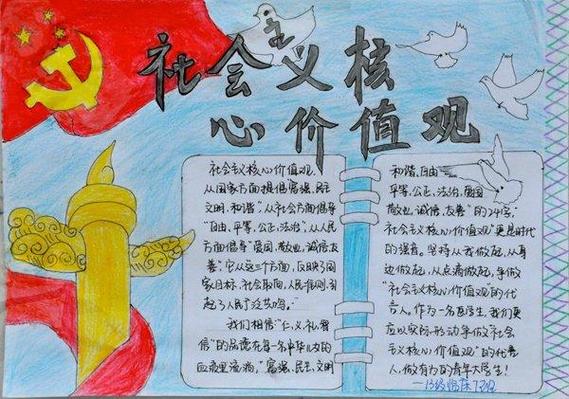 社会主义核
心价值观
社会主义核心价值观,
从国家方面提倡富强,民主
文明,和谐",从社会方面倡导
"自由,平等,公正,法治",从人民
方面倡导"爱国,敬业,诚信,友
善",它从这三个方面,反映了国
家目标,社会取向,人民准则,引
起了人民广泛共鸣。"
我们相信"仁,义,礼,智
信"的品德在每一名中华儿女的
血液里流淌,"富强,民主,文明
和谐,自由
平等,公正,法治,爱国
敬业,诚信,友善"的24字,
社会主义核心价值观"更是时代
的强音。坚持从我做起,从身
边做起,从点滴做起,争做
"社会主义核心价值观的代
言人。作为一名医学生,我们更
应以实际形动争做社会
主义核心价值观"的代言
人,做有为的青年大学生!